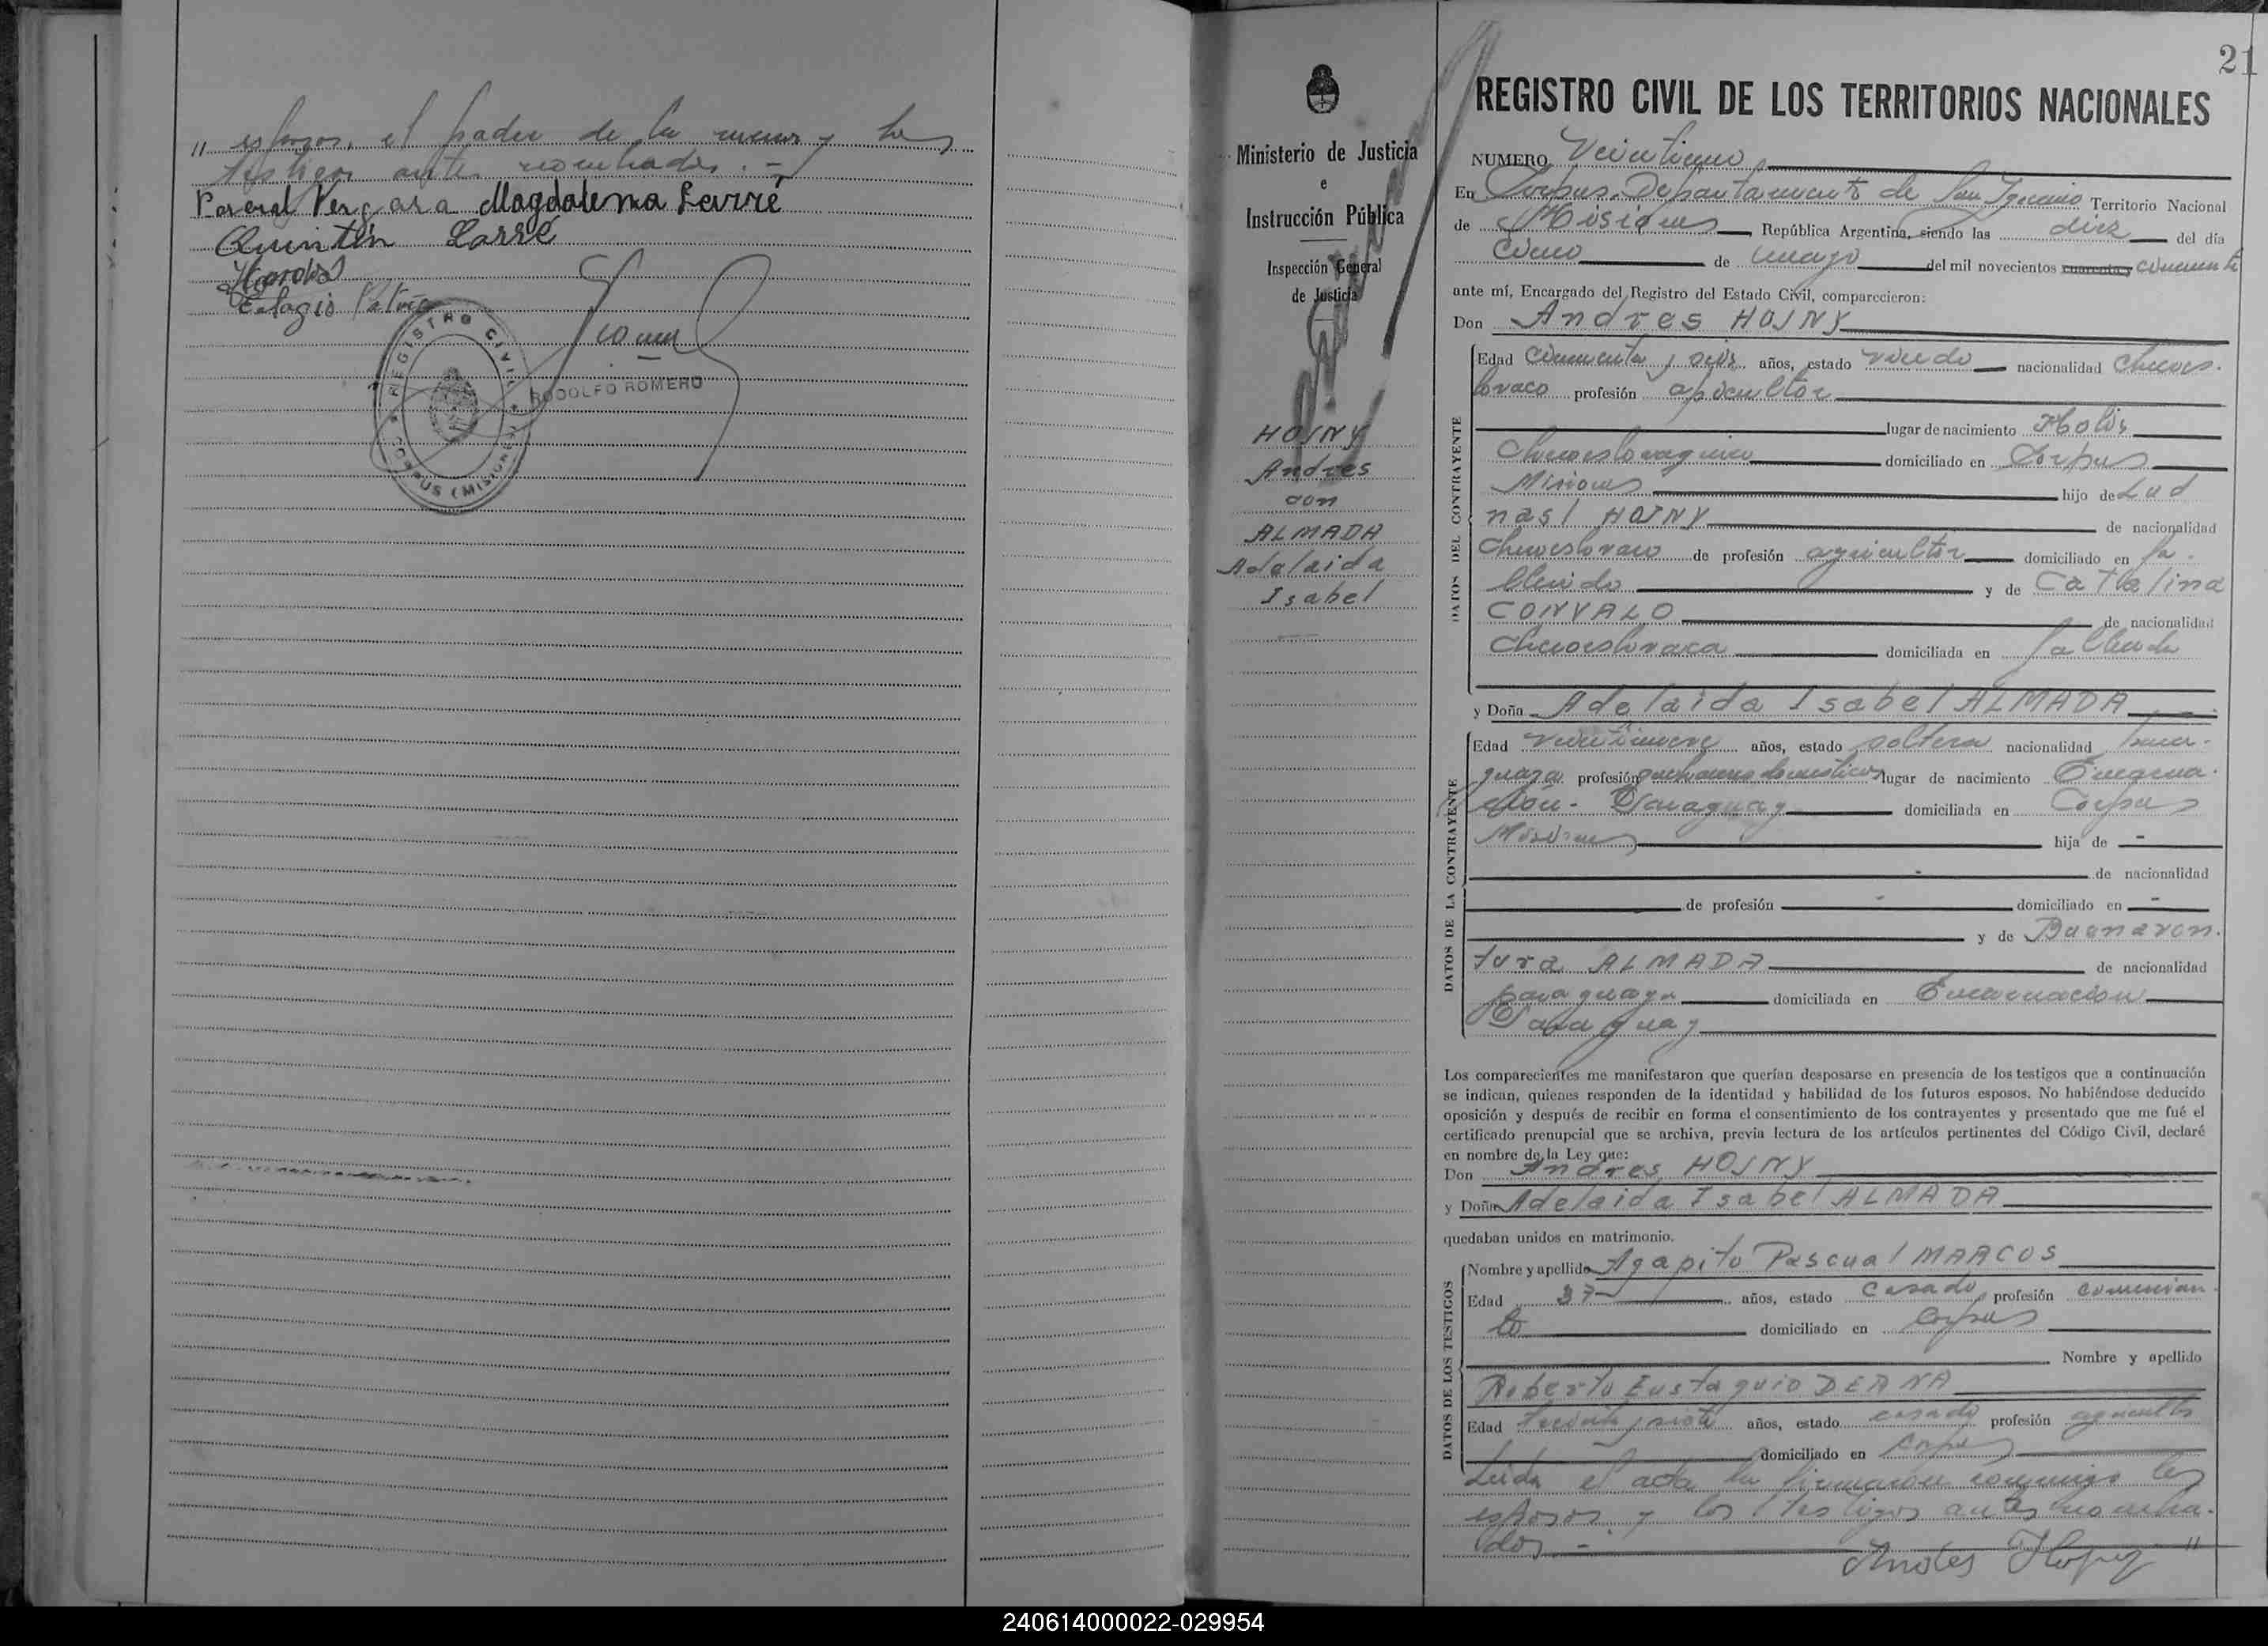 " esposos, el padre de la menor y los
testigos antes nombrados. -
Pascual Vergara Magdalena Larré
Quintín Larré
Eulogio
REGISTRO CIVIL
CORPUS (MISIONES)
RODOLFO ROMERO
21
Ministerio de Justicia
e
Instrucción Pública
Inspección General
de Justicia
HOJNY
Andres
con
ALMADA
Adelaida
Isabel
REGISTRO CIVIL DE LOS TERRITORIOS NACIONALES
NUMERO Veintiuno
En Corpus. Departamento de San Ignacio Territorio Nacional
de Misiones República Argentina, siendo las diez del día
cinco de mayo del mil novecientos cuarenta y cincuenta
ante mí, Encargado del Registro del Estado Civil, comparecieron:
Don Andres HOJNY
DATOS DEL CONTRAYENTE
Edad cincuenta y seis años, estado viudo nacionalidad checoes-
lovaco profesión apicultor
lugar de nacimiento
Checoeslovaquia domiciliado en Corpus
Misiones hijo de
HOJNY de nacionalidad
checoeslovaco de profesión agricultor domiciliado en fa-
llecido y de Catalina
CONVALO de nacionalidad
checoeslovaca domiciliada en fallecida
y Doña Adelaida Isabel ALMADA
DATOS DE LA CONTRAYENTE
Edad veintinueve años, estado soltera nacionalidad para-
guaya profesión quehaceres domésticos lugar de nacimiento Encarna-
ción - Paraguay domiciliada en Corpus
Misiones hija de -
de nacionalidad
de profesión - domiciliado en -
y de Buenaven-
tura ALMADA de nacionalidad
paraguaya domiciliada en Encarnación
Paraguay
Los comparecientes me manifestaron que querían desposarse en presencia de los testigos que a continuación
se indican, quienes responden de la identidad y habilidad de los futuros esposos. No habiéndose deducido
oposición y después de recibir en forma el consentimiento de los contrayentes y presentado que me fué el
certificado prenupcial que se archiva, previa lectura de los artículos pertinentes del Código Civil, declaré
en nombre de la Ley que:
Don Andres HOJNY
y Doña Adelaida Isabel ALMADA
quedaban unidos en matrimonio.
DATOS DE LOS TESTIGOS
Nombre y apellido Agapito Pascual MARCOS
Edad 37 años, estado casado profesión comercian-
te domiciliado en Corpus
Nombre y apellido
Roberto Eustaquio DERNA
Edad treinta y siete años, estado casado profesión agricultor
domiciliado en Corpus
Leída el acta la firmaron conmigo los
esposos y los testigos antes nombra-
dos. -
240614000022-029954